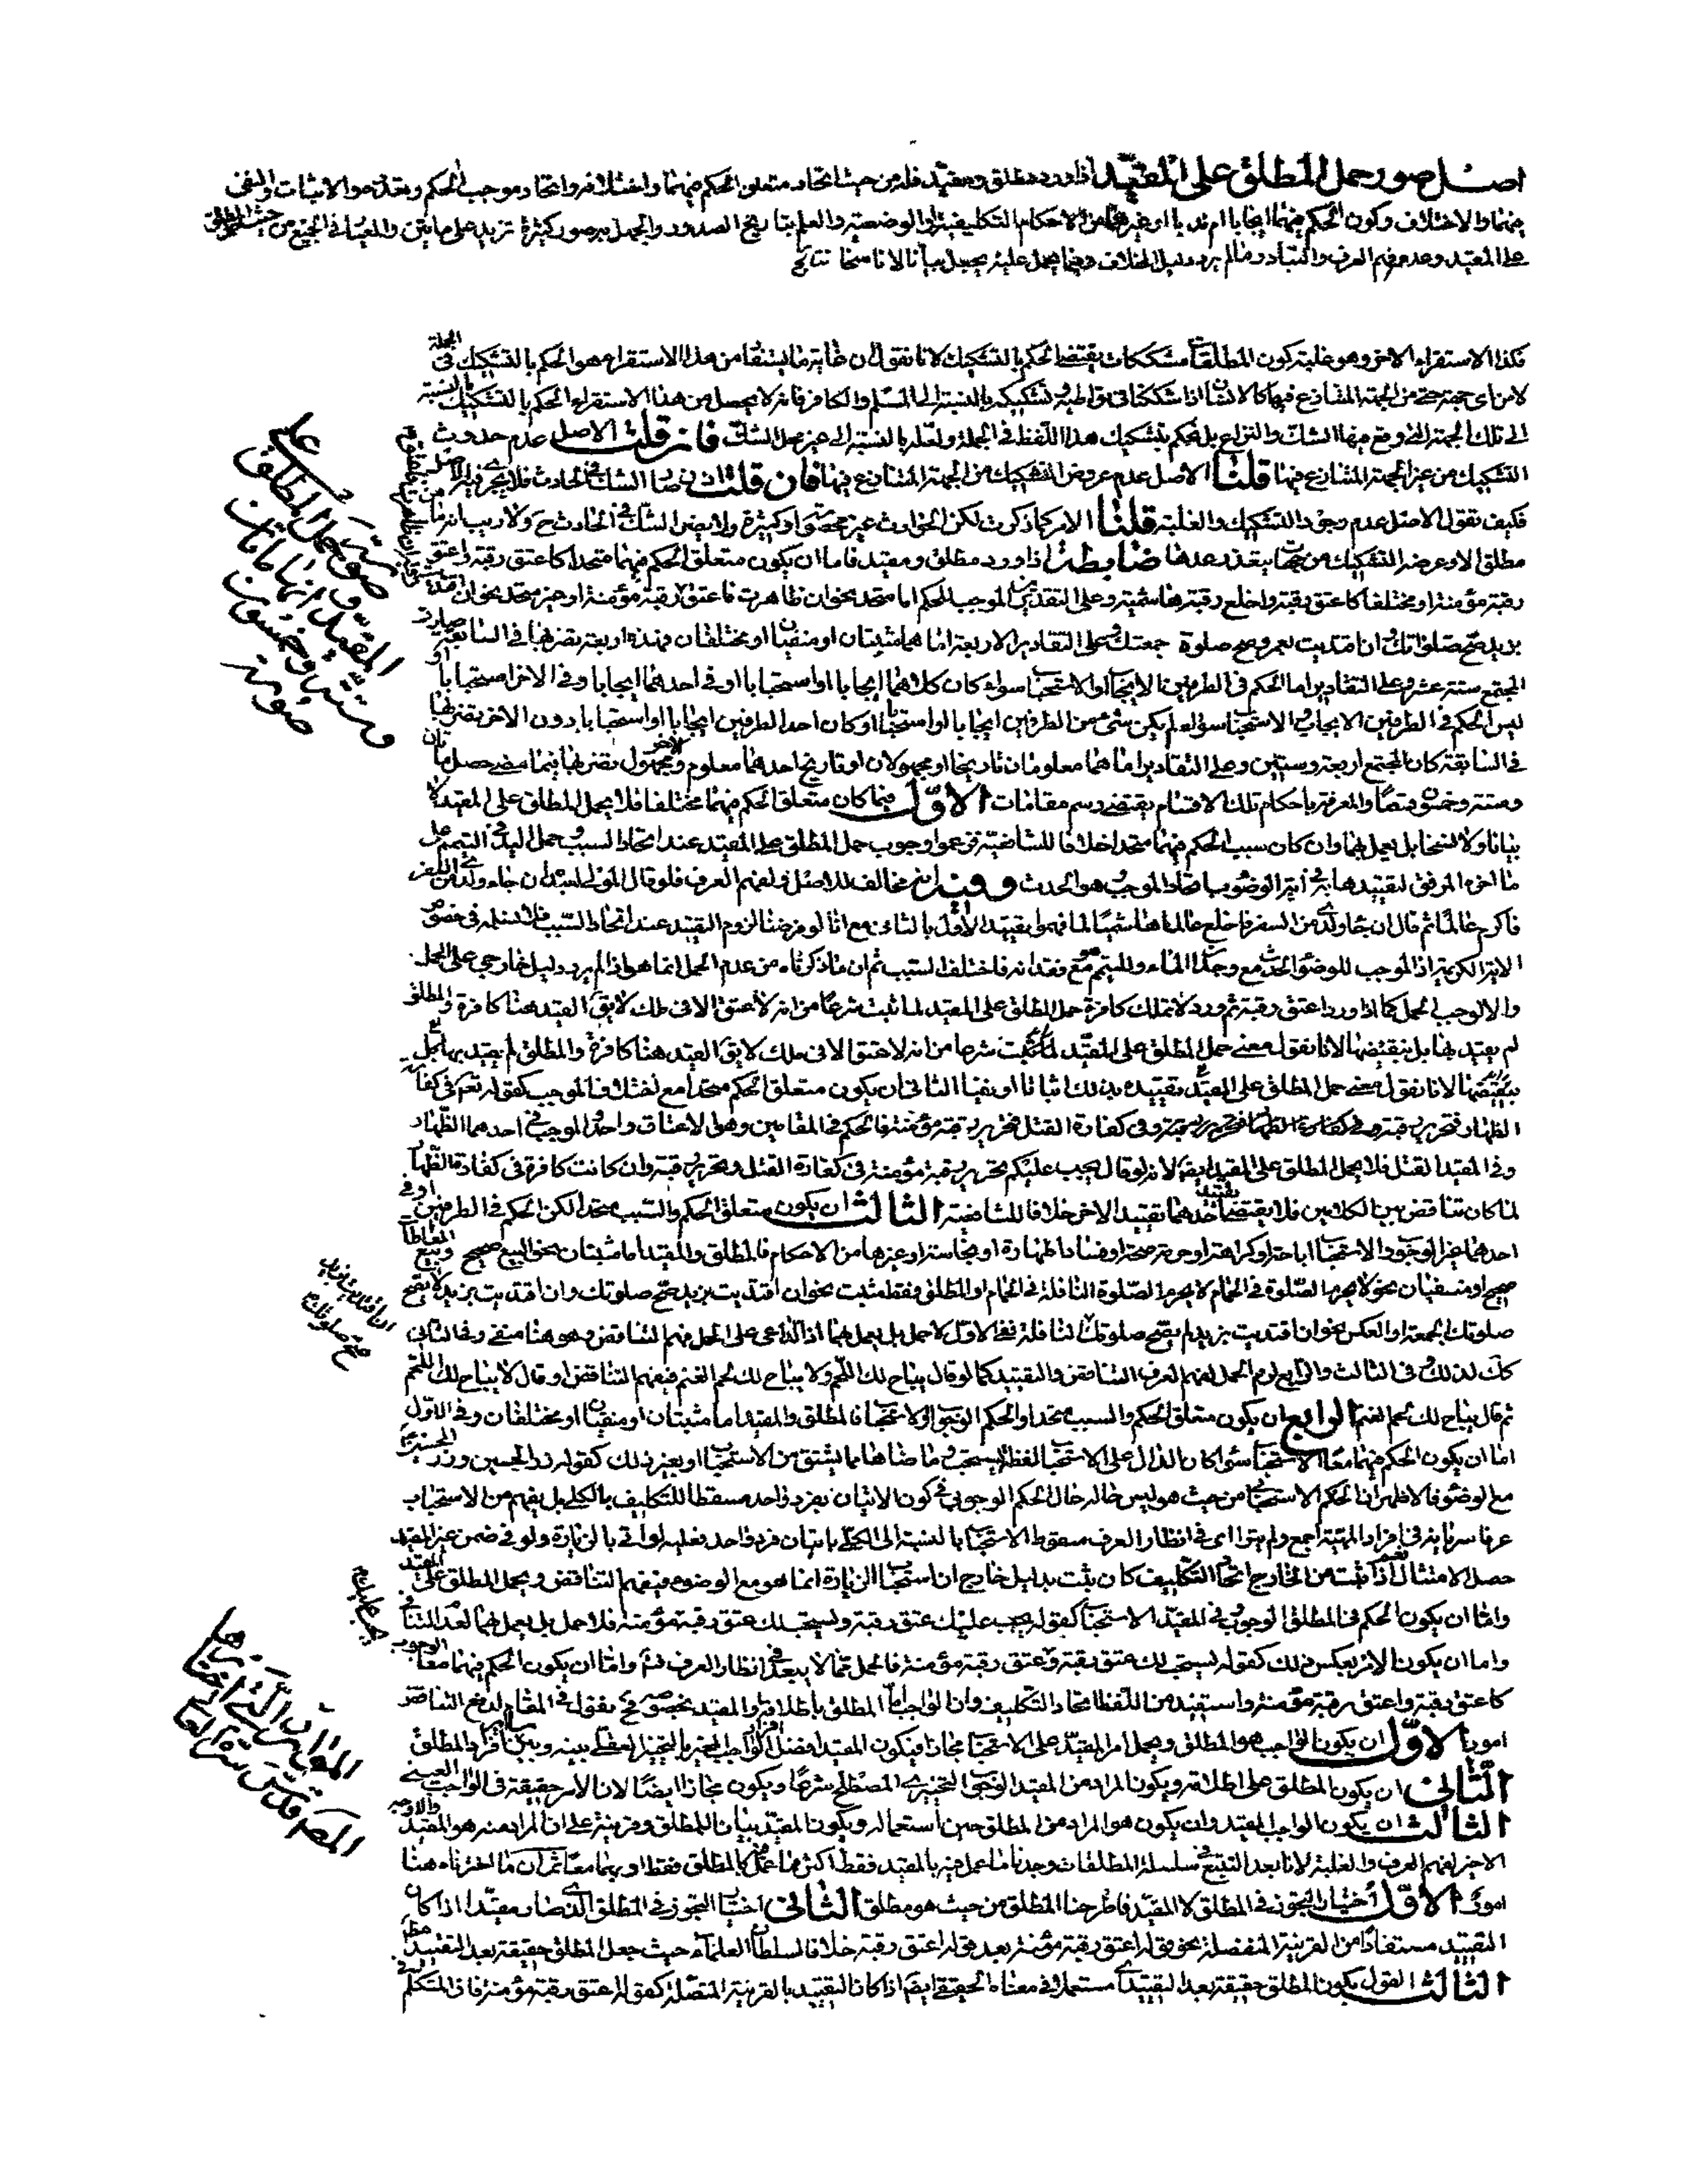 اصل صور حمل المطلق على المقيد اذا ورد مطلق ومقيد فله من حيث اتحاد متعلق الحكم فيهما واختلافه واتحاد موجب الحكم وتعدده والاثبات والنفى
فيهما والاختلاف وكون الحكم فيهما ايجابا ام ندبا او غيرهما من الاحكام التكليفية او الوضعية والعلم بتاريخ الصدور والجهل به صور كثيرة تزيد على مأتين والمعيار فى الجميع من حيث حمل المطلق
على المقيد وعدمه فهم العرف والتبادر ما لم يرد دليل الخلاف وفيما يحمل عليه يجعل بيانا لا ناسخا نتايج
فكذا الاستقراء الاخر وهو غلبة كون المطلقات مشككات يقتضى الحكم بالتشكيك لانا نقول ان غاية ما يستفاد من هذا الاستقراء هو الحكم بالتشكيك فى الجملة
لا من اى جهة حتى من الجهة المتنازع فيها كالانسان اذا شككنا فى تواطيه وتشكيكه بالنسبة الى المسلم والكافر فانه لا يحصل من هذا الاستقراء الحكم بالتشكيك بالنسبة
الى تلك الجهة التى وقع فيها الشك والنزاع بل نحكم بتشكيك هذا اللفظ فى الجملة ولعله بالنسبة الى غير محل الشك فان قلت الاصل عدم حدوث
التشكيك من غير الجهة المتنازع فيها قلنا الاصل عدم عروض التشكيك من الجهة المتنازع فيها فان قلت الشك فى الحادث فلا يجرى الاصل
فكيف نقول الاصل عدم وجود التشكيك والغلبة قلنا الامر كما ذكرت لكن الحوادث غير محصورة وكثيرة ولا يضر الشك فى الحادث ح ولا ريب انه ما من
مطلق الا وعرضه التشكيك من جهات يتعذر عدها ضابطة اذا ورد مطلق ومقيد فاما ان يكون متعلق الحكم فيهما متحدا كاعتق رقبة واعتق
رقبة مؤمنة او مختلفا كاعتق رقبة واخلع رقبة هاشمية وعلى التقديرين الموجب للحكم اما متحد نحو ان ظاهرت فاعتق رقبة مؤمنة او غير متحد نحو ان اقتديت
بزيد صح صلوتك وان اقتديت بعمرو صح صلوة جمعتك وعلى التقادير الاربعة اما هما مثبتان او منفيان او مختلفان فهذه اربعة نضربها فى السابقة صارت
المجتمع ستة عشر وعلى التقادير اما الحكم فى الطرفين الايجاب او الاستحباب سواء كان كلاهما ايجابا او استحبابا او فى احدهما ايجابا وفى الاخر استحبابا او
ليس الحكم فى الطرفين الايجاب والاستحباب سواء لم يكن شئ من الطرفين ايجابا او استحبابا او كان احد الطرفين ايجابا او استحبابا دون الاخر نضربها
فى السابقة كان المجتمع اربعة وستين وعلى التقادير اما هما معلومان تاريخا او مجهولان او تاريخ احدهما معلوم والاخر مجهول نضربها فيما مضى حصل مأتان
وستة وخمسون قسما والمعرفة باحكام تلك الاقسام يقتضى رسم مقامات الاول فيما كان متعلق الحكم فيهما مختلفا فلا يحمل المطلق على المقيد لا
بيانا ولا نسخا بل يعمل بهما وان كان سبب الحكم فيهما متحدا خلافا للشافعية فزعموا وجوب حمل المطلق على المقيد عند اتحاد السبب وحمل اليد فى التيمم على
ما اخره المرفق لتقييدها به فى آية الوضوء باتحاد الموجب وهو الحدث وفيه انه مخالف للاصل ولفهم العرف فلو قال المولى لعبده ان جاء ولدى من السفر
فاكرم عالما ثم قال ان جاء ولدى من السفر فاخلع عالما هاشميا لما فهموا تقييد الاول بالثانى مع انا لو فرضنا لزوم التقييد عند اتحاد السبب فلا نسلمه فى خصوص
الاية الكريمة اذ الموجب للوضوء الحدث مع وجدان الماء وللتيمم هو مع فقدانه فاختلف السبب ثم ان ما ذكرناه من عدم الحمل انما هو اذا لم يرد دليل خارجى على الحمل
والا لوجب الحمل كما اذا ورد اعتق رقبة ثم ورد لا تملك كافرة حمل المطلق على المقيد لما ثبت شرعا من انه لا عتق الا فى ملك لا يق القيد هنا كافرة والمطلق
لم يقيد بها بل بنقيضها لانا نقول معنى حمل المطلق على المقيد لما ثبت شرعا من انه لا عتق الا فى ملك لا يق القيد هنا كافرة والمطلق لم يقيد بها بل
بنقيضها لانا نقول معنى حمل المطلق على المقيد تقييده بذلك اثباتا او نفيا الثانى ان يكون متعلق الحكم متحدا مع اختلاف الموجب كقوله تعم فى كفارة
الظهار فتحرير رقبة وفى كفارة القتل فتحرير رقبة مؤمنة فالحكم فى المقامين وهو الاعتاق واحد والموجب فى احدهما الظهار
وفى المقيد القتل فلا يحمل المطلق على المقيد ايضا لانه لو قال يجب عليكم تحرير رقبة مؤمنة فى كفارة القتل وتحرير رقبة وان كانت كافرة فى كفارة الظهار
لما كان تناقض بين الكلامين فلا يقتضى تقييد احدهما تقييد الاخر خلافا للشافعية الثالث ان يكون متعلق الحكم والسبب متحدا لكن الحكم فى الطرفين او فى
احدهما غير الوجوب والاستحباب اباحة او كراهة او حرمة صحة او فسادا طهارة او نجاسة او غيرها من الاحكام فالمطلق والمقيد اما مثبتان نحو البيع صحيح وبيع المعاطاة
صحيح او منفيان نحو لا يحرم الصلوة فى الحمام لا يحرم الصلوة النافلة فى الحمام او المطلق فقط مثبت نحو ان اقتديت بزيد صح صلوتك وان اقتديت بزيد لا يصح
صلوتك الجمعة او العكس نحو ان اقتديت بزيد لم يصح صلوتك النافلة ففى الاول لا حمل بل يعمل بهما اذ الداعى على الحمل فهم التناقض وهو هنا منفى وفى الثانى
كك لذلك وفى الثالث والرابع لزم الحمل لفهم العرف التناقض والتقييد كما لو قال يباح لك اللحم ولا يباح لك لحم الغنم فيفهم التناقض او قال لا يباح لك اللحم
ثم قال يباح لك لحم الغنم الرابع ان يكون متعلق الحكم والسبب متحدا والحكم الوجوب او الاستحباب فالمطلق والمقيد اما مثبتان او منفيان او مختلفان وفى الاول
اما ان يكون الحكم فيهما معا الاستحباب سواء كان الدال على الاستحباب لفظ يستحب وما ضاهاها مما يشتق من الاستحباب او بغير ذلك كقوله زر الحسين وزر الحسين
مع الوضوء فالاظهر ان الحكم الاستحبابى من حيث هو ليس حاله حال الحكم الوجوبى فى كون الاتيان بفرد واحد مسقطا للتكليف بالكلى بل يفهم من الاستحباب
عرفا سريانه فى افراد المهية اجمع ولم يتراءى فى انظار العرف سقوط الاستحباب بالنسبة الى الكلى باتيان فرد واحد فعليه لو اتى بالزيارة ولو فى ضمن غير المقيد
حصل الامتثال نعم اذا ثبت من الخارج اتحاد التكليف كان يثبت بدليل خارج ان استحباب الزيارة انما هو مع الوضوء فيفهم التناقض ويحمل المطلق على المقيد
واما ان يكون الحكم فى المطلق الوجوب وفى المقيد الاستحباب كقوله يجب عليك عتق رقبة ويستحب لك عتق رقبة مؤمنة فلا حمل بل يعمل بهما لعدم التنافى
واما ان يكون الامر بعكس ذلك كقوله يستحب لك عتق رقبة و عتق رقبة مؤمنة فالحمل مما لا يبعد فى انظار العرف واما ان يكون الحكم فيهما معا الوجوب
كاعتق رقبة واعتق رقبة مؤمنة واستفيد من اللفظ اتحاد التكليف وان الواجب اما المطلق باطلاقه او المقيد بخصوصه فح نقول فى المقام لدفع التناقض
امور الاول ان يكون الواجب هو المطلق ويحمل امر المقيد على الاستحباب مجازا فيكون المقيد افضل افراد الواجب المخير بالتخيير العقلى بينه وبين ساير افراد المطلق
الثانى ان يكون المطلق على اطلاقه ويكون المراد من المقيد الوجوب التخييرى المصطلح شرعا ويكون مجازا ايضا لان الامر حقيقة فى الواجب العينى
الثالث ان يكون الواجب المقيد وان يكون هو المراد من المطلق حين استعماله ويكون المقيد بيانا للمطلق وقرينة على ان المراد منه هو المقيد والاوجه
الاخير لفهم العرف والغلبة لانا بعد التتبع فى سلسلة المطلقات وجدنا ما عمل فيه بالمقيد فقط اكثر مما عمل بالمطلق فقط او بهما معا ثم ان ما اخترناه هنا
امور الاول اختيار التجوز فى المطلق لا المقيد فاطرحنا المطلق من حيث هو مطلق الثانى اختيار التجوز فى المطلق الذى صار مقيدا اذا كان
التقييد مستفادا من القرينة المنفصلة نحو قوله اعتق رقبة مؤمنة بعد قوله اعتق رقبة خلافا لسلطان العلماء حيث جعل المطلق حقيقة بعد التقييد مطلقا
الثالث القول بكون المطلق حقيقة بعد التقييد اى مستعملا فى معناه الحقيقى ايضا اذا كان التقييد بالقرينة المتصلة كقوله اعتق رقبة مؤمنة فان المتكلم
صور حمل المطلق على
المقيد منها مأتان
وستة وخمسون
صورة
ان اقتديت بزيد
صح صلوتك